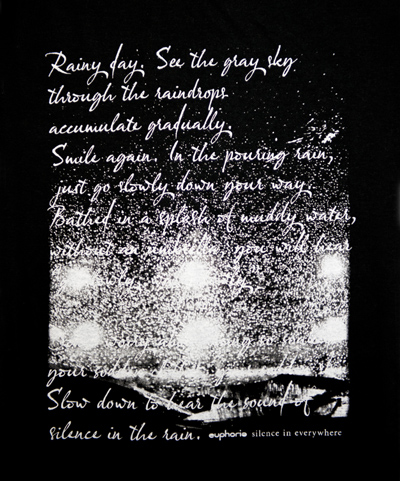 Rainy day. See the gray sky
through the raindrops
accumulate gradually.
Smile again. In the pouring rain,
just go slowly down your way.
Bathed in a splash of muddy water,
without an umbrella, you will hear
your
Slow down to hear the sound of
silence in the rain. euphoria silence in everywhere